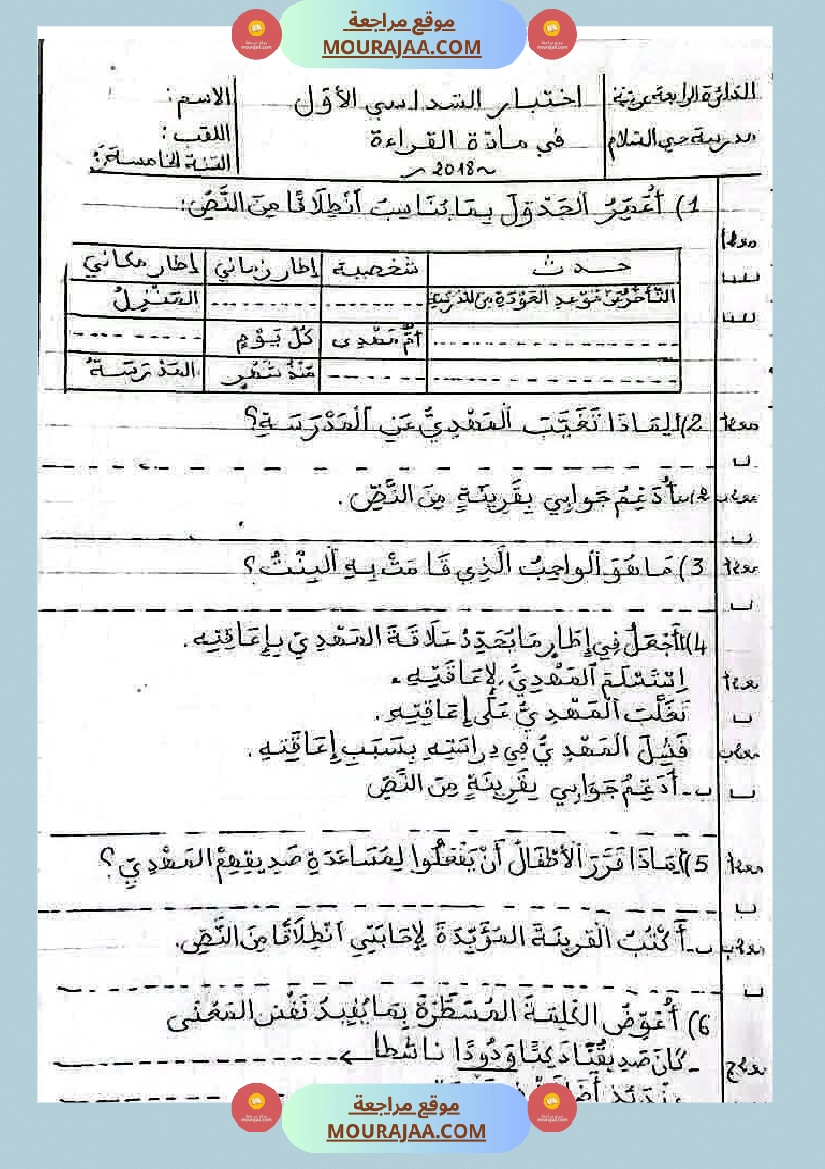 موقع مراجعة
MOURAJAA.COM
اختبار السداسي الأوّل
في مادّة القراءة
~ 2018 ~
مدرسة حي السّلام
الاسم:
اللقب:
السنة الخامسة
1) أُعَمِّرُ الجَدْوَلَ بِمَا يُنَاسِبُ انْطِلَاقًا مِنَ النَّصِّ:
حدث شخصية إطار زماني إطار مكاني
التَّأَخُّرُ عَنْ مَوْعِدِ العَوْدَةِ مِنَ المَدْرَسَةِ المَنْزِلُ
أُمُّ مَهْدِي كُلَّ يَوْمٍ
مُنْذُ شَهْرٍ المَدْرَسَةُ
2) أ) لِمَاذَا تَغَيَّبَ المَهْدِيُّ عَنِ المَدْرَسَةِ؟
أُدَعِّمُ جَوَابِي بِقَرِينَةٍ مِنَ النَّصِّ.
3) مَا هُوَ الْوَاجِبُ الَّذِي قَامَتْ بِهِ الْبِنْتُ؟
4) أ) أَجْعَلُ فِي إِطَارٍ مَا يُحَدِّدُ عَلَاقَةَ المَهْدِيِّ بِإِعَاقَتِهِ.
اِسْتَسْلَمَ المَهْدِيُّ لِإِعَاقَتِهِ.
تَغَلَّبَ المَهْدِيُّ عَلَى إِعَاقَتِهِ.
فَشِلَ المَهْدِيُّ فِي دِرَاسَتِهِ بِسَبَبِ إِعَاقَتِهِ.
ب - أُدَعِّمُ جَوَابِي بِقَرِينَةٍ مِنَ النَّصِّ
5) أ) مَاذَا قَرَّرَ الْأَطْفَالُ أَنْ يَفْعَلُوا لِمُسَاعَدَةِ صَدِيقِهِمْ المَهْدِيِّ؟
ب - أَكْتُبُ القَرِينَةَ المُؤَيِّدَةَ لِإِجَابَتِي انْطِلَاقًا مِنَ النَّصِّ.
6) أُعَوِّضُ الكَلِمَةَ المُسَطَّرَةَ بِمَا يُفِيدُ نَفْسَ المَعْنَى
- كَانَ صَدِيقُنَا وَدُودًا نَاشِطًا
موقع مراجعة
MOURAJAA.COM